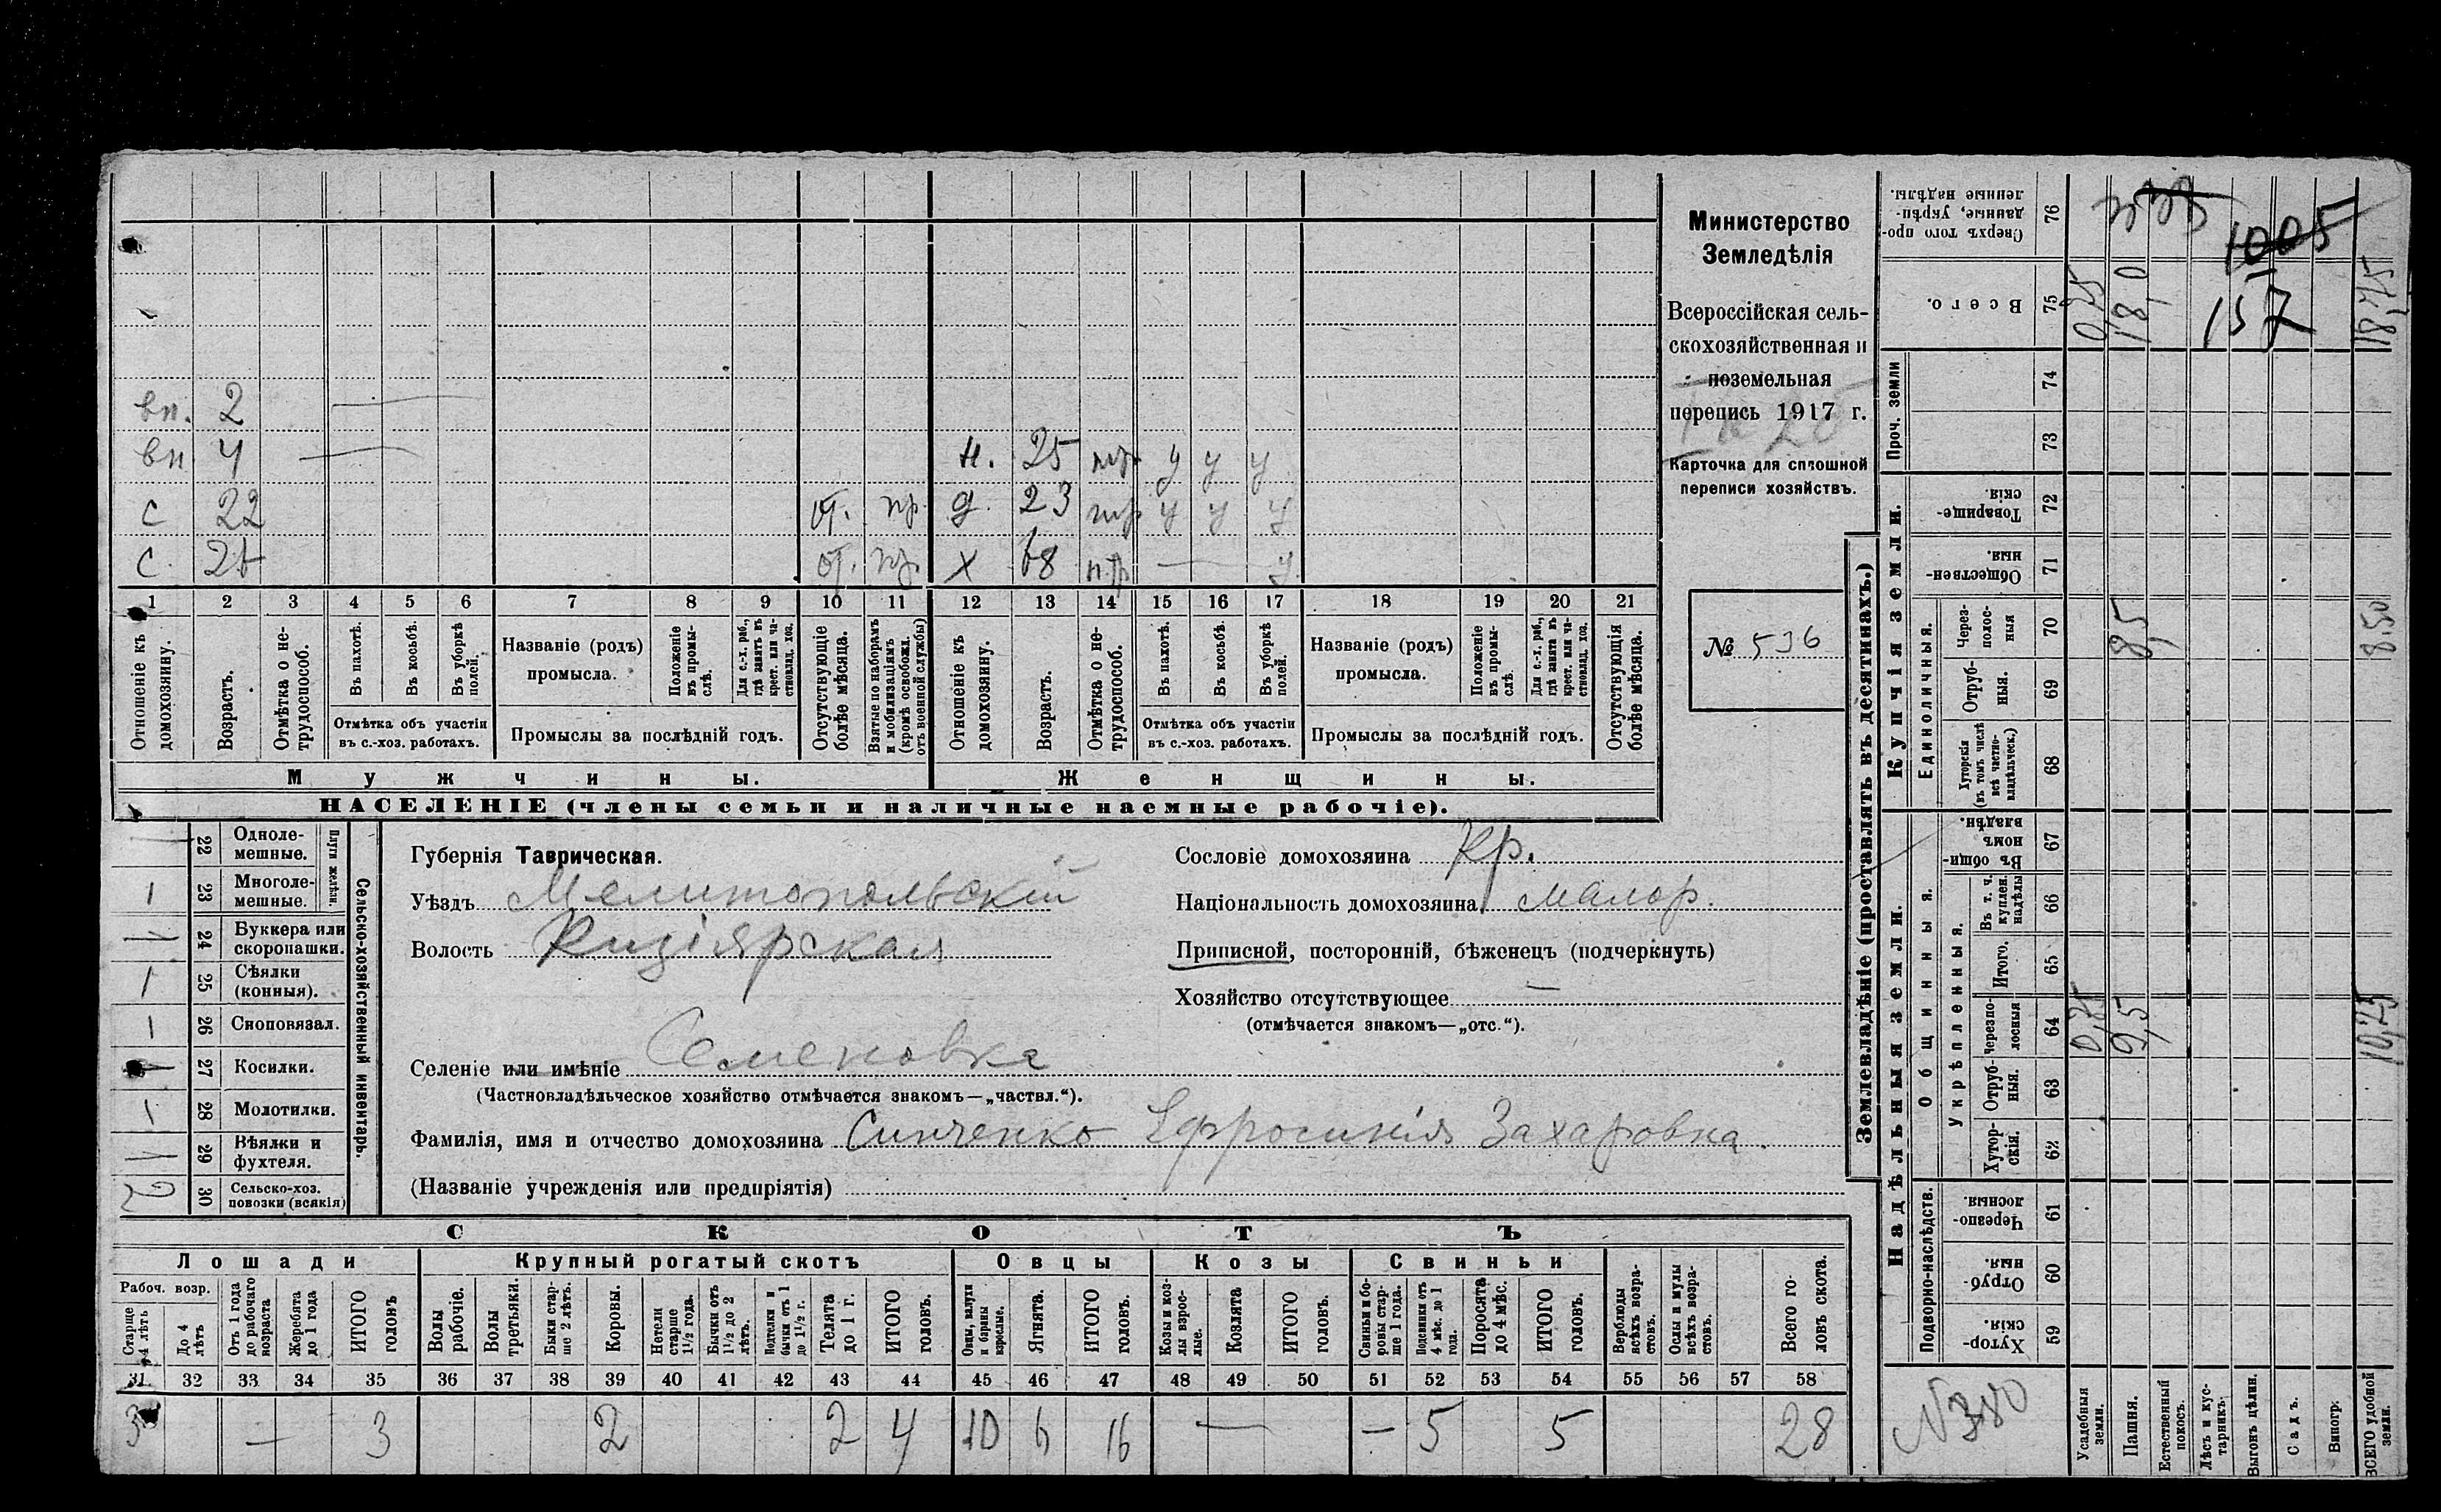 Министерство
Земледѣлія
Всероссійская сель-
скохозяйственная и
поземельная
перепись 1917 г.
Карточка для сплошной
переписи хозяйствъ.
№ 536
вп. 2
вп 4 н. 25 у у у
с 22 от. пр. д. 23 у у у
с. от. пр. х 68 у
1 2 3 4 5 6 7 8 9 10 11 12 13 14 15 16 17 18 19 20 21
Отношеніе къ домохозяину.
Возрастъ.
Отмѣтка о не-трудоспособ.
Въ пахотѣ.
Въ косьбѣ.
Въ уборкѣ полей.
Отмѣтка объ участіи
въ с.-хоз. работахъ.
Названіе (родъ)
промысла.
Положеніе въ промы-слѣ.
Для с.-х. раб., гдѣ занятъ въ крест. или ча-стновлад. хоз.
Промыслы за послѣдній годъ.
Отсутствующіе болѣе мѣсяца.
Взятые по наборамъ и мобилизаціямъ (кромѣ освобожд. отъ военной службы)
Отношеніе къ домохозяину.
Возрастъ.
Отмѣтка о не-трудоспособ.
Въ пахотѣ.
Въ косьбѣ.
Въ уборкѣ полей.
Отмѣтка объ участіи
въ с.-хоз. работахъ.
Названіе (родъ)
промысла.
Положеніе въ промы-слѣ.
Для с.-х. раб., гдѣ занята въ крест. или ча-стновлад. хоз.
Промыслы за послѣдній годъ.
Отсутствующія болѣе мѣсяца.
Мужчины. Женщины.
НАСЕЛЕНІЕ (члены семьи и наличные наемные рабочіе).
22 Одноле-мешные.
1 23 Многоле-мешные.
Плуги желѣзн.
24 Буккера или скоропашки.
1 25 Сѣялки (конныя).
1 26 Сноповязал.
27 Косилки.
1 28 Молотилки.
29 Вѣялки и фухтеля.
2 30 Сельско-хоз. повозки (всякія)
Сельско-хозяйственный инвентарь.
Губернія Таврическая.
Уѣздъ Мелитопольскій
Волость Кизіярская
Селеніе или имѣніе Семеновка
(Частновладѣльческое хозяйство отмѣчается знакомъ—„частвл.“).
Фамилія, имя и отчество домохозяина Синченко Ефросинія Захаровна.
(Названіе учрежденія или предпріятія)
Сословіе домохозяина Кр.
Національность домохозяина малор.
Приписной, посторонній, бѣженецъ (подчеркнуть)
Хозяйство отсутствующее —
(отмѣчается знакомъ—„отс.“).
СКОТЪ
Лошади Крупный рогатый скотъ Овцы Козы Свиньи
Рабоч. возр.
Старше 4 лѣтъ
До 4 лѣтъ
Отъ 1 года до рабочаго возраста
Жеребята до 1 года
ИТОГО головъ
Волы рабочіе.
Волы третьяки.
Быки стар-ше 2 лѣтъ.
Коровы.
Нетели старше 1½ года.
Бычки отъ 1½ до 2 лѣтъ.
Подтелки и бычки отъ 1 до 1½ г.
Телята до 1 г.
ИТОГО головъ.
Овцы, валухи и бараны взрослые.
Ягнята.
ИТОГО головъ.
Козы и коз-лы взрос-лые.
Козлята
ИТОГО головъ.
Свиньи и бо-ровы стар-ше 1 года.
Подсвинки отъ 4 мѣс. до 1 года.
Поросята до 4 мѣс.
ИТОГО головъ.
Верблюды всѣхъ возра-стовъ.
Ослы и мулы всѣхъ возра-стовъ.
Всего го-ловъ скота.
31 32 33 34 35 36 37 38 39 40 41 42 43 44 45 46 47 48 49 50 51 52 53 54 55 56 57 58
3 — 3 2 2 4 10 6 16 — — 5 5 28
Землевладѣніе (проставлять въ десятинахъ.)
Купчія земли.
Надѣльныя земли.
Сверхъ того про-данные, укрѣп-ленные надѣлы. 76
1005
Всего. 75 0,75 18,0 157 18,75
Проч. земли 74
73
Товарище-скія. 72
Обществен-ныя. 71
Единоличныя.
Через-полос-ныя 70 8,5 8,50
Отруб-ныя. 69
Хуторскія (въ томъ числѣ всѣ частно-владѣльческ.) 68
Общинныя.
Въ общи-номъ владѣн. 67
Укрѣпленныя.
Въ т. ч. куплен. надѣлы 66
Итого. 65
Черезпо-лосныя 64 9,5
Отруб-ныя. 63
Хутор-скія. 62
Подворно-наслѣдств.
Черезпо-лосныя. 61
Отруб-ныя. 60
Хутор-скія. 59
N380
Усадебныя земли.
Пашня.
Естественный покосъ.
Лѣсъ и кус-тарникъ.
Выгонъ цѣлин.
Садъ.
Виногр.
ВСЕГО удобной земли.